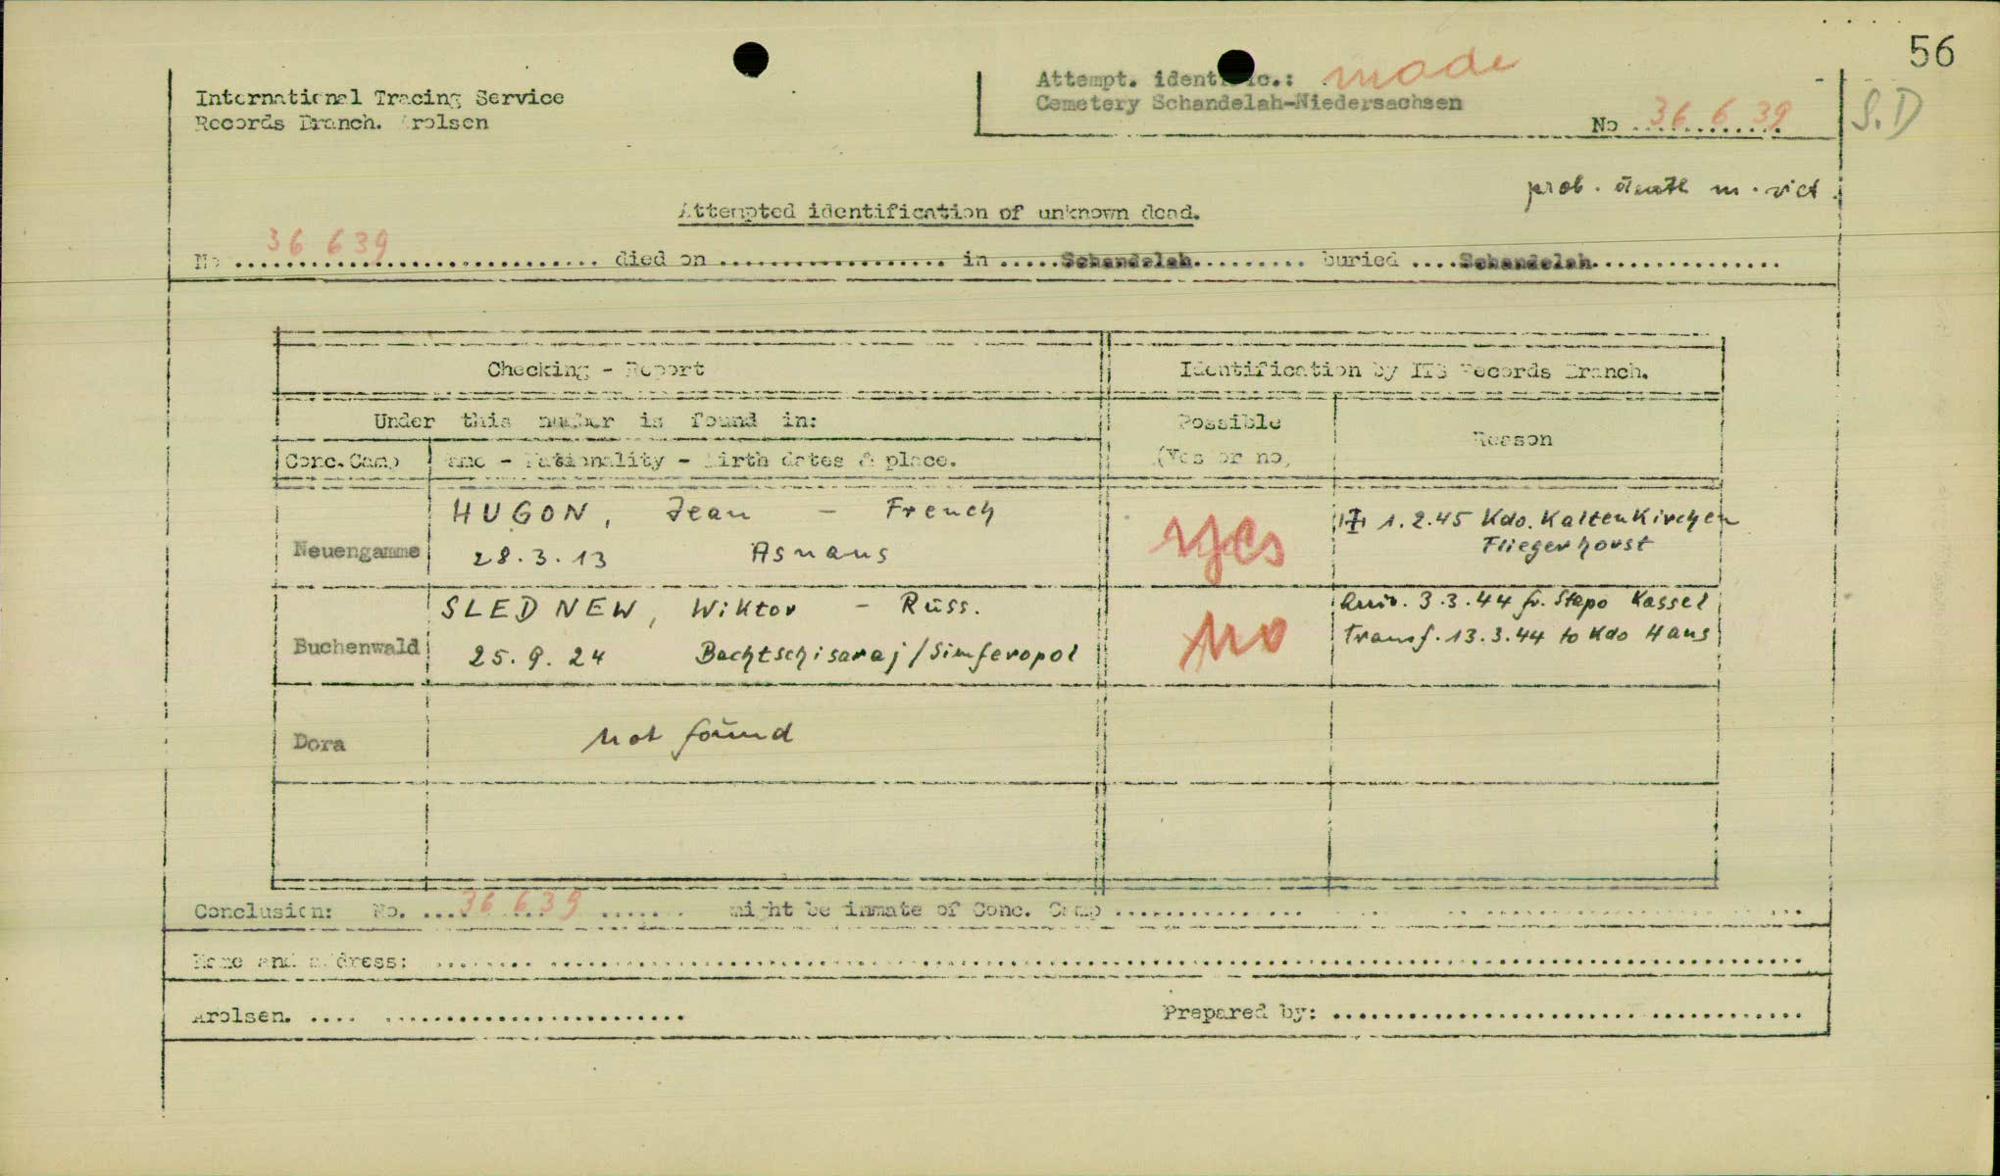 56
International Tracing Service
Records Branch. Arolsen
Attempt. identific.: made
Cemetery Schandelah-Niedersachsen
No 36 6 39
S.D
prob. death m. vict.
Attempted identification of unknown dead.
No 36 6 39 died on in Schandelah buried Schandelah
Checking - Report
Identification by ITS Records Branch.
Under this number is found in:
Possible
(Yes or no)
Reason
Conc. Camp
Name - Nationality - Birth dates & place.
HUGON, Jean - French
Neuengamme
28.3.13 Asnans
yes
1.2.45 Kdo. Kaltenkirchen
Fliegerhorst
SLEDNEW, Wiktor - Russ.
Buchenwald
25.9.24 Bachtschisaraj/Simferopol
no
Arriv. 3.3.44 fr. Stapo Kassel
transf. 13.3.44 to Kdo Hans
Dora
not found
Conclusion: No. 36 6 39 might be inmate of Conc. Camp
Name and address:
Arolsen.
Prepared by: